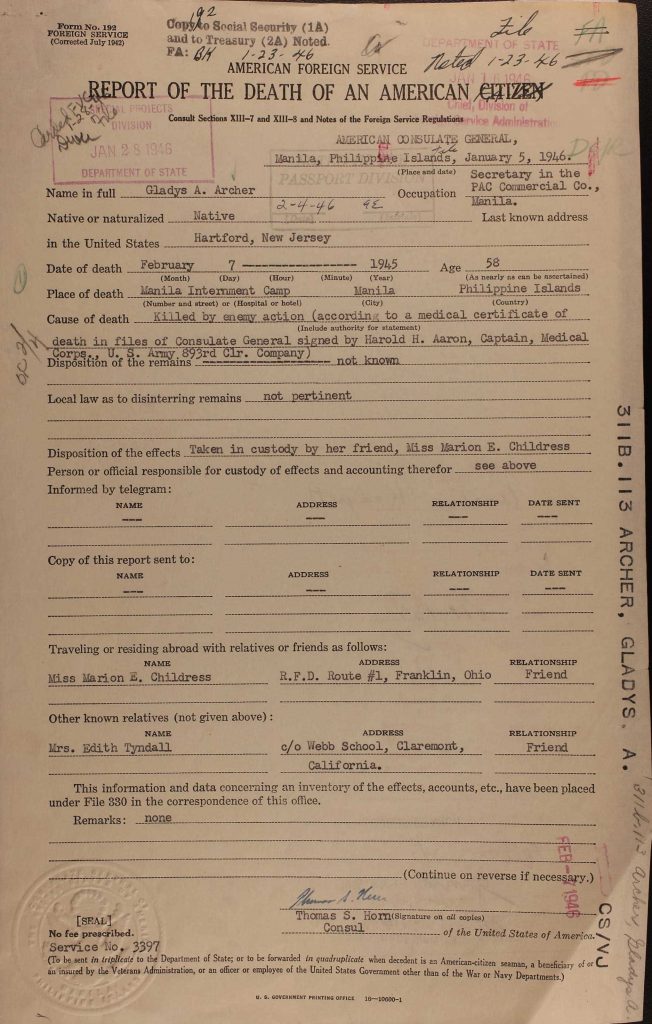 Form No. 192
FOREIGN SERVICE
(Corrected July 1942)
192
Copy to Social Security (1A)
and to Treasury (2A) Noted.
FA: BH 1-23-46
File
FA
DEPARTMENT OF STATE
Noted 1-23-46
JAN 16 1946
Chief, Division of
Service Administration
AMERICAN FOREIGN SERVICE
REPORT OF THE DEATH OF AN AMERICAN CITIZEN
Consult Sections XIII-7 and XIII-8 and Notes of the Foreign Service Regulations
SPECIAL PROJECTS
DIVISION
JAN 28 1946
DEPARTMENT OF STATE
AMERICAN CONSULATE GENERAL,
Manila, Philippine Islands, January 5, 1946.
(Place and date)
PASSPORT DIVISION
2-4-46
Name in full Gladys A. Archer Occupation Secretary in the
PAC Commercial Co.,
Manila.
Native or naturalized Native Last known address
in the United States Hartford, New Jersey
Date of death February 7 ----------------- 1945 Age 58
(Month) (Day) (Hour) (Minute) (Year) (As nearly as can be ascertained)
Place of death Manila Internment Camp Manila Philippine Islands
(Number and street) or (Hospital or hotel) (City) (Country)
Cause of death Killed by enemy action (according to a medical certificate of
(Include authority for statement)
death in files of Consulate General signed by Harold H. Aaron, Captain, Medical
Corps., U. S. Army 893rd Clr. Company)
Disposition of the remains ------------------- not known
Local law as to disinterring remains not pertinent
Disposition of the effects Taken in custody by her friend, Miss Marion E. Childress
Person or official responsible for custody of effects and accounting therefor see above
Informed by telegram:
NAME ADDRESS RELATIONSHIP DATE SENT
--- --- --- ---
Copy of this report sent to:
NAME ADDRESS RELATIONSHIP DATE SENT
--- --- --- ---
Traveling or residing abroad with relatives or friends as follows:
NAME ADDRESS RELATIONSHIP
Miss Marion E. Childress R.F.D. Route #1, Franklin, Ohio Friend
Other known relatives (not given above):
NAME ADDRESS RELATIONSHIP
Mrs. Edith Tyndall c/o Webb School, Claremont, Friend
California.
This information and data concerning an inventory of the effects, accounts, etc., have been placed
under File 330 in the correspondence of this office.
Remarks: none
(Continue on reverse if necessary.)
Thomas S. Horn
Thomas S. Horn (Signature on all copies)
Consul of the United States of America.
[SEAL]
No fee prescribed.
Service No. 3397
(To be sent in triplicate to the Department of State; or to be forwarded in quadruplicate when decedent is an American-citizen seaman, a beneficiary of or
an insured by the Veterans Administration, or an officer or employee of the United States Government other than of the War or Navy Departments.)
U. S. GOVERNMENT PRINTING OFFICE 16-10600-1
311B.113 ARCHER, GLADYS. A.
311b.113 Archer, Gladys A.
FEB 1946
CS/VJ